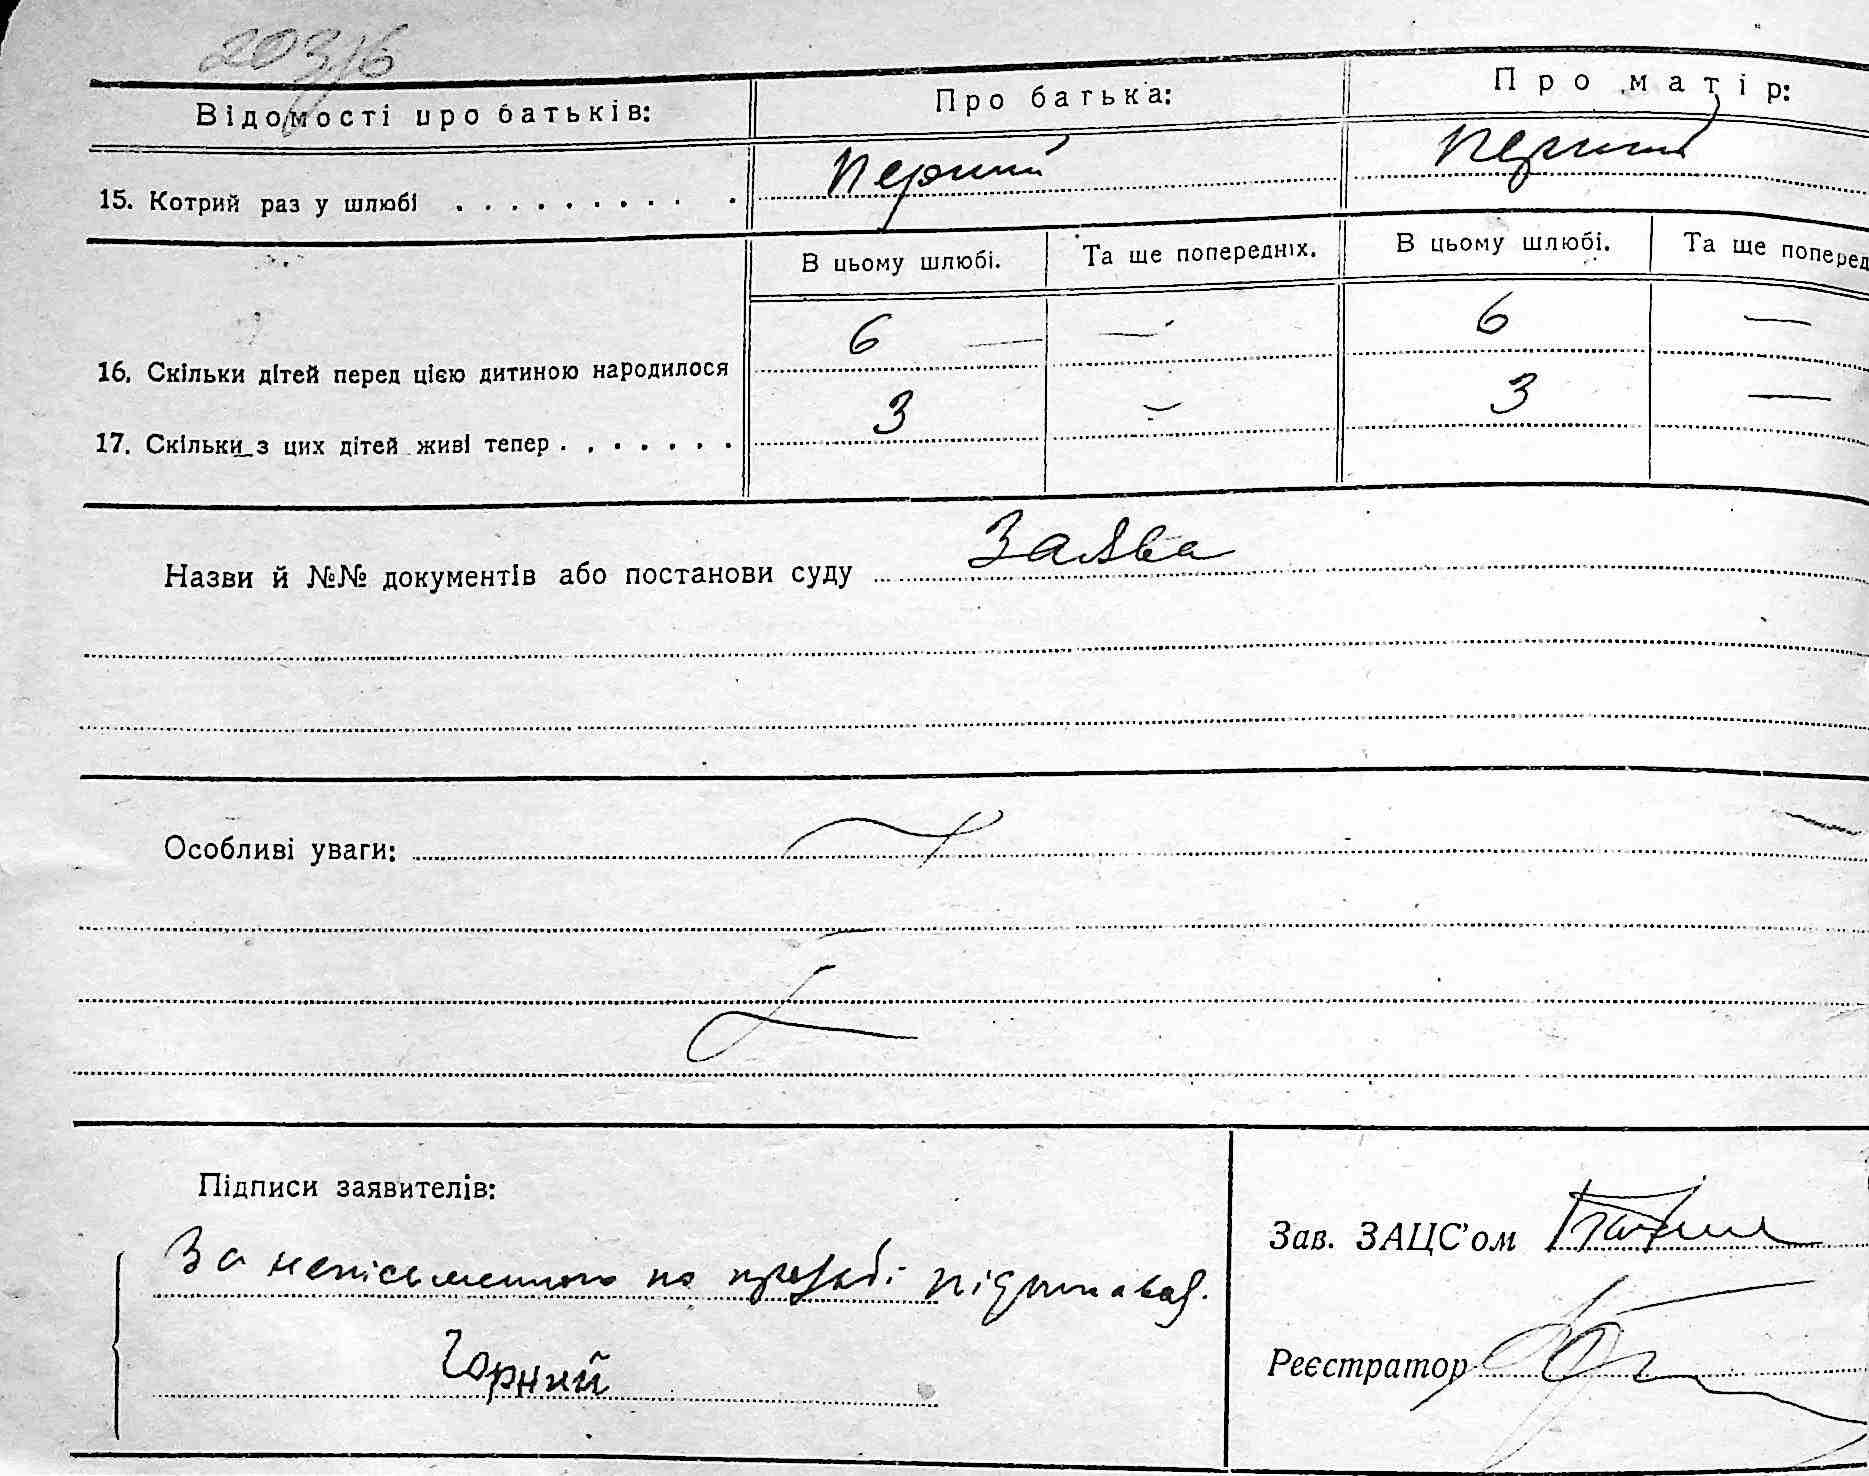 203/6
Відомості про батьків: Про батька: Про матір:
15. Котрий раз у шлюбі . . . . . . . . . . . перший перший
В цьому шлюбі. Та ще попередніх. В цьому шлюбі. Та ще поперед
16. Скільки дітей перед цією дитиною народилося 6 — — 6 —
17. Скільки з цих дітей живі тепер . . . . . . . 3 — 3 —
Назви й №№ документів або постанови суду Заява
Особливі уваги:
Підписи заявителів:
Зав. ЗАЦС'ом
За неписьменного по прозьбі підписав.
Реєстратор
Горний